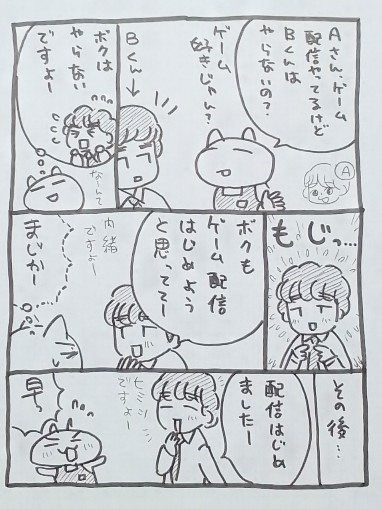 Aさん、ゲーム
配信やってるけど
Bくんは
やらないの?
ゲーム
好きじゃん?
A
Bくん
ボクは
やらない
ですよー
なーんて
もじっ…
ボクも
ゲーム配信
はじめよう
と思ってて
内緒
ですよー
まじかー
その後…
配信はじめ
ましたー
ヒミツ
ですよー
早っ